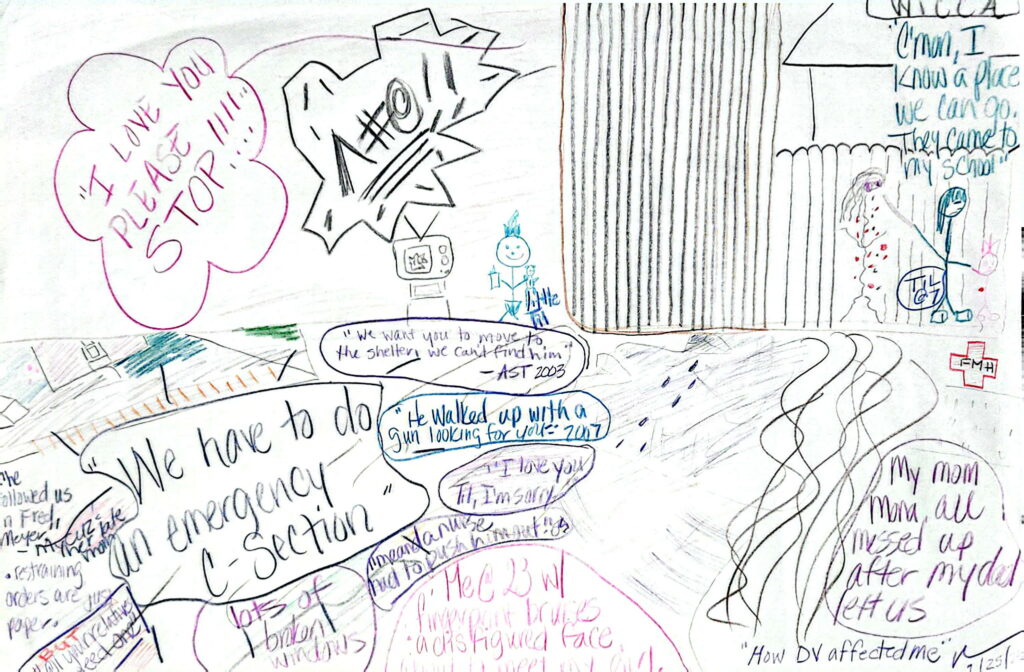 "I LOVE YOU
PLEASE
STOP!!!!"...
#@
WICCA
"C'mon, I
know a place
we can go.
They came to
my school"
TIL
@7
little
Til
"We want you to move to
the shelter, we can't find him"
- AST 2003
"He walked up with a
gun looking for you" 2007
"I love you
Til, I'm sorry
"We have to do
an emergency
C-Section"
FMH
My mom
Mona, all
messed up
after my dad
left us
"He
followed us
n Fred
Meyer
- My
late
mom
• restraining
orders are just
paper
"me and a nurse
had to push him out"
BUT
your relative
lots of
broken
windows
Me @ 23 w/
fingerprint bruises
a disfigured face
to meet my
"How DV affected me"
7/25/